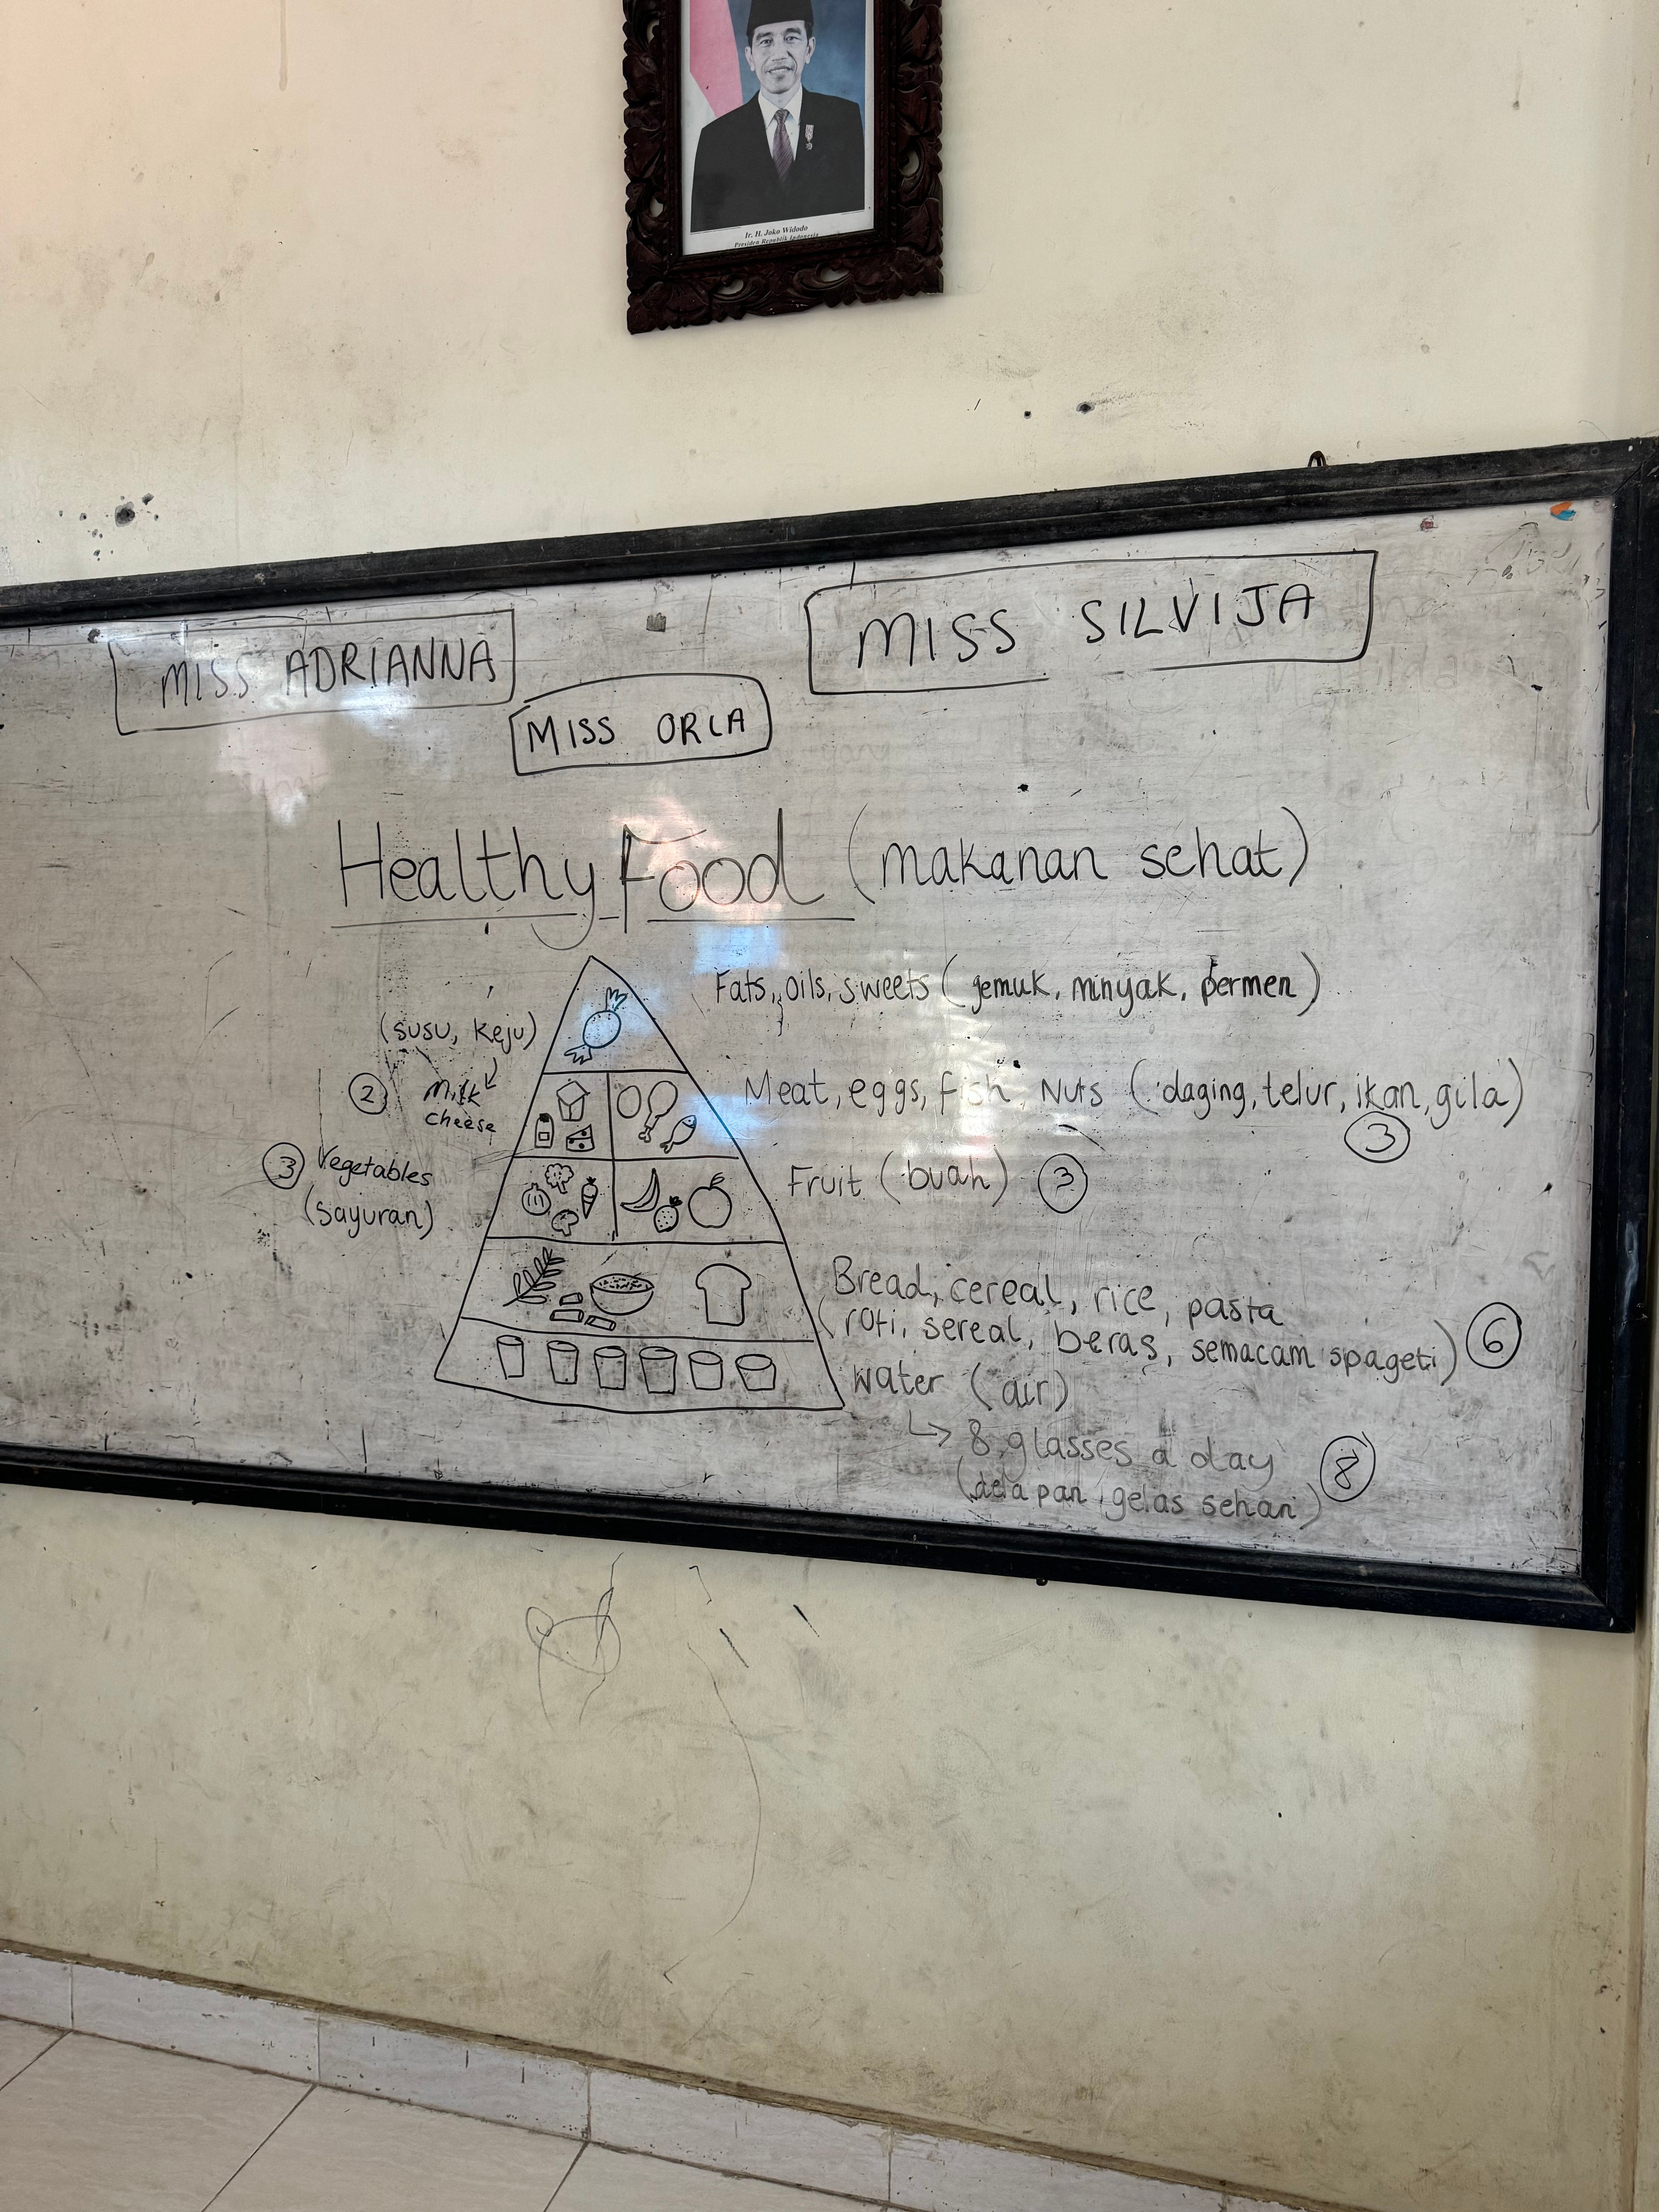 Ir. H. Joko Widodo
Presiden Republik Indonesia
MISS ADRIANNA
MISS ORLA
MISS SILVIJA
Healthy Food (makanan sehat)
Fats, oils, sweets (gemuk, minyak, permen)
(susu, keju)
② milk
cheese
Meat, eggs, fish, Nuts (daging, telur, ikan, gila)
③
③ Vegetables
(sayuran)
Fruit (buah) ③
Bread, cereal, rice, pasta
(roti, sereal, beras, semacam spageti) ⑥
water (air)
↳ 8 glasses a day ⑧
(dela pan gelas sehari)